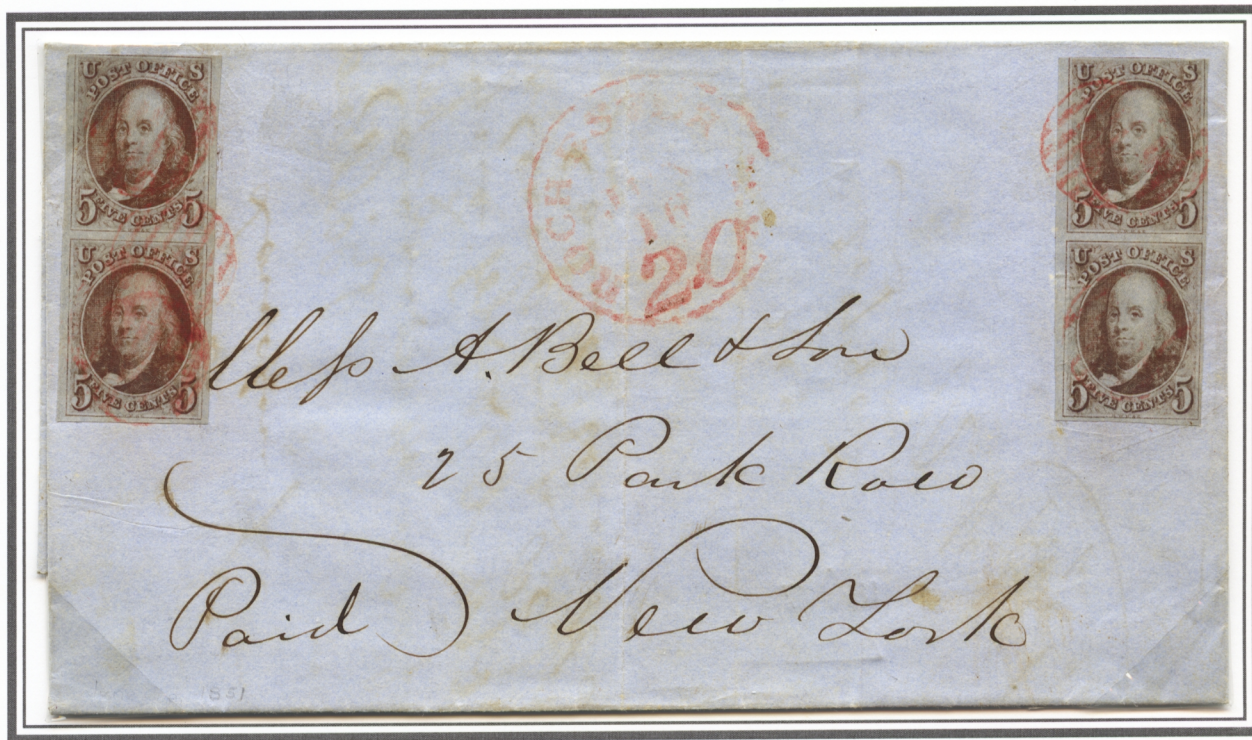 U S
POST OFFICE
5 FIVE CENTS 5
U S
POST OFFICE
5 FIVE CENTS 5
ROCHESTER
16
20
U S
POST OFFICE
5 FIVE CENTS 5
U S
POST OFFICE
5 FIVE CENTS 5
Mess A. Bell & Son
25 Park Row
Paid New York
851